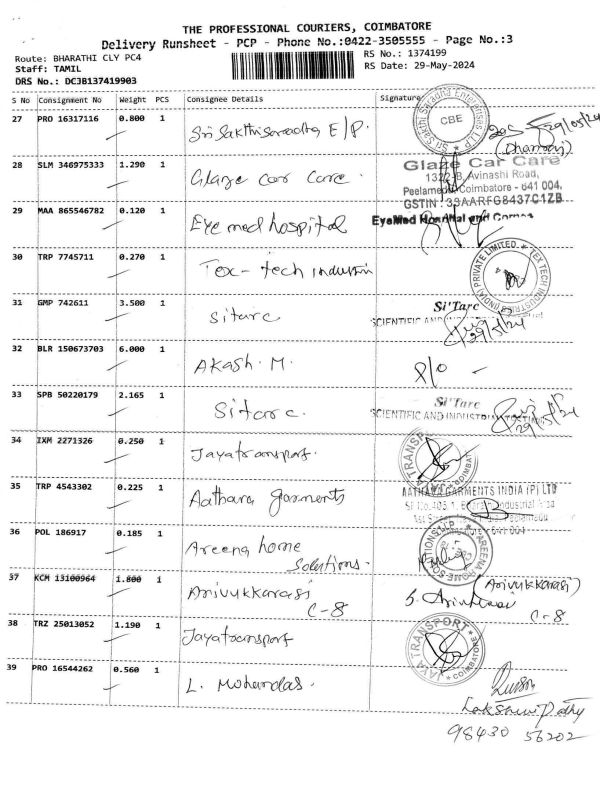 THE PROFESSIONAL COURIERS, COIMBATORE
Delivery Runsheet - PCP - Phone No.:0422-3505555 - Page No.:3
Route: BHARATHI CLY PC4
RS No.: 1374199
Staff: TAMIL
RS Date: 29-May-2024
DRS No.: DCJB137419903
S No Consignment No Weight PCS Consignee Details Signature
27 PRO 16317116 0.800 1 Sri Sakthi Saradha E/P.
CBE
29/05/24
(Dhanraj)
28 SLM 346975333 1.290 1 Glaze car care.
Glaze Car Care
Avinashi Road,
Coimbatore - 641 004.
GSTIN : 33AARFG8437C1ZB
29 MAA 865546782 0.120 1 Eye med hospital
EyeMed Hospital and
30 TRP 7745711 0.270 1 Tex-tech
31 GMP 742611 3.500 1 Sitarc
Si'Tarc
SCIENTIFIC AND
29/5/24
32 BLR 150673703 6.000 1 Akash. M.
33 SPB 50220179 2.165 1 Sitarc.
Si'Tarc
SCIENTIFIC AND INDUSTRIAL
29/5/24
34 IXM 2271326 0.250 1 Jayatransport.
35 TRP 4543302 0.225 1 Aathava garments
AATHAVA GARMENTS INDIA (P) LTD
36 POL 186917 0.185 1 Areena home
Solutions.
37 KCM 13100964 1.800 1 Arivukkarasi
C-8
(Arivukkarasi)
C-8
38 TRZ 25013052 1.190 1 Jayatransport
JAYA TRANSPORT
COIMBATORE
39 PRO 16544262 0.560 1 L. Mohandas.
Lakshmipathy
98430 56202